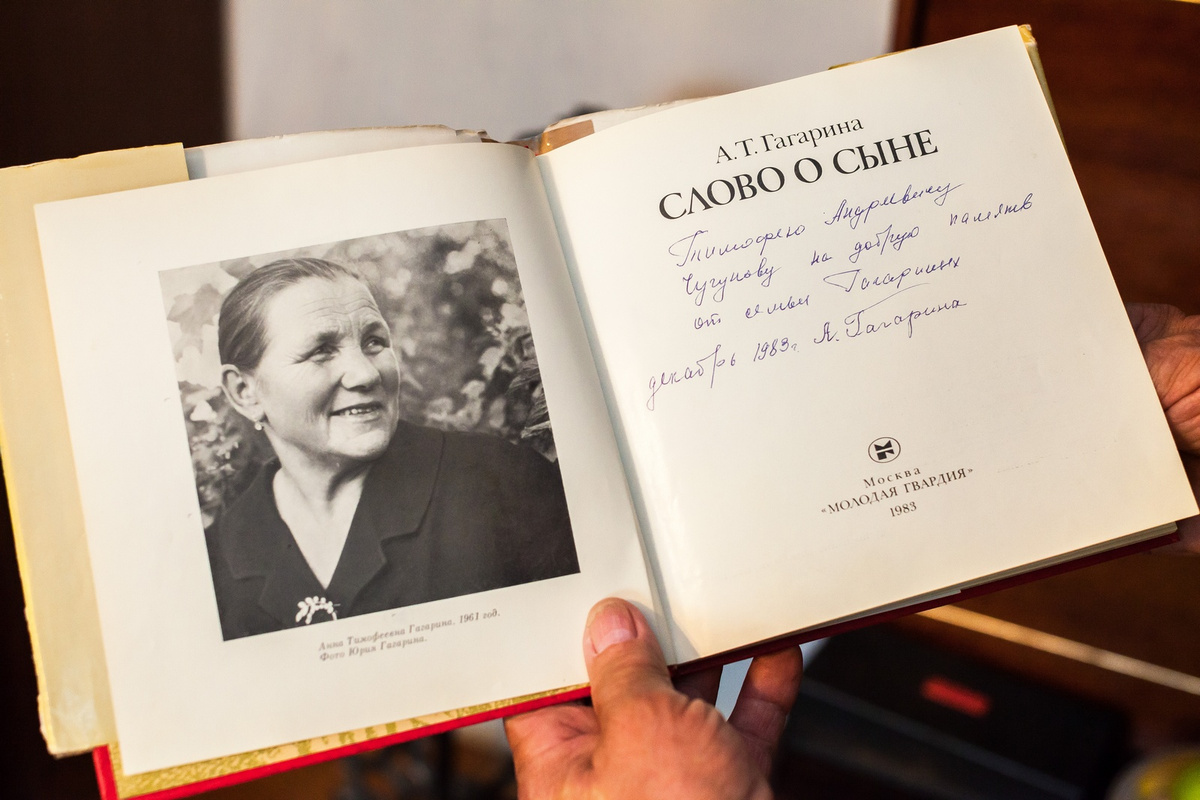 Анна Тимофеевна Гагарина. 1961 год.
Фото Юрия Гагарина.
А. Т. Гагарина
СЛОВО О СЫНЕ
Тимофею Андреевичу
Чугунову на добрую память
от семьи Гагариных
декабрь 1983г. А. Гагарина
Москва
«МОЛОДАЯ ГВАРДИЯ»
1983